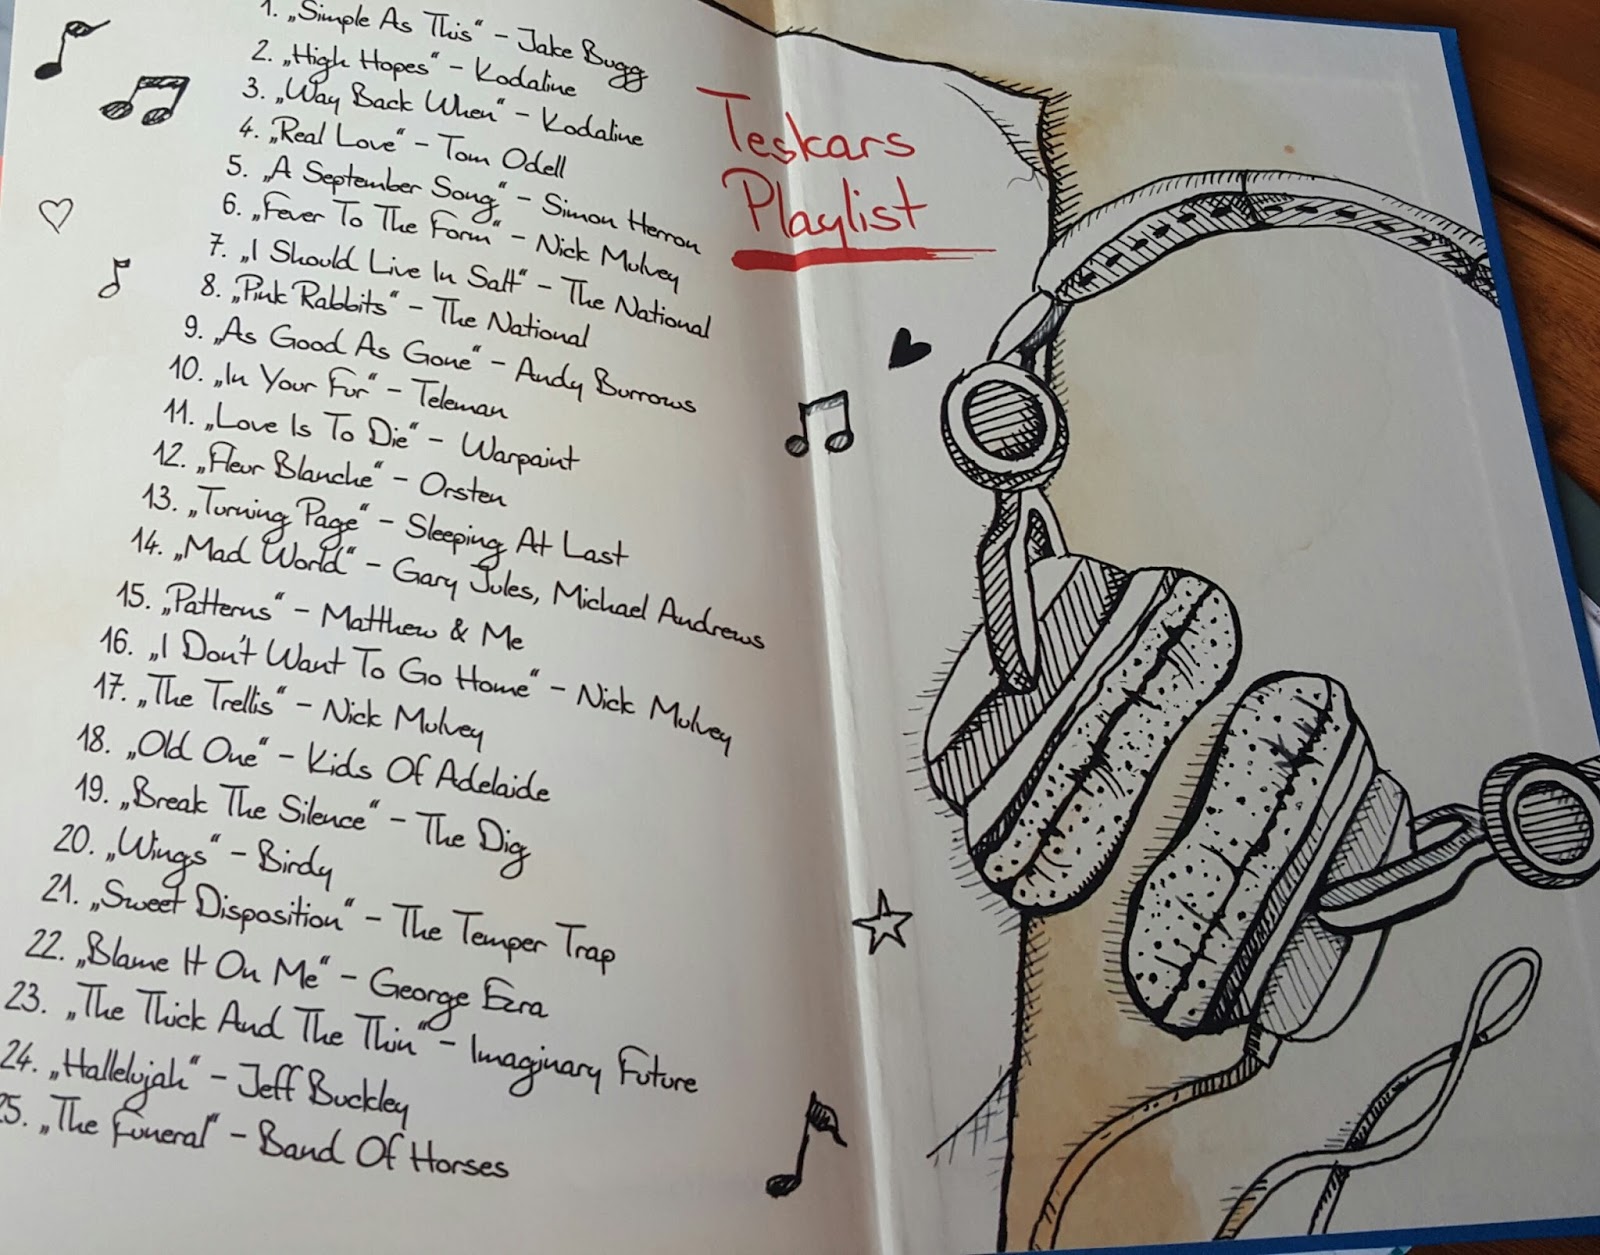 1. „Simple As This“ – Jake Bugg
2. „High Hopes“ – Kodaline
3. „Way Back When“ – Kodaline
4. „Real Love“ – Tom Odell
5. „A September Song“ – Simon Herron
6. „Fever To The Form“ – Nick Mulvey
7. „I Should Live In Salt“ – The National
8. „Pink Rabbits“ – The National
9. „As Good As Gone“ – Andy Burrows
10. „In Your Fur“ – Teleman
11. „Love Is To Die“ – Warpaint
12. „Fleur Blanche“ – Orsten
13. „Turning Page“ – Sleeping At Last
14. „Mad World“ – Gary Jules, Michael Andrews
15. „Patterns“ – Matthew & Me
16. „I Don't Want To Go Home“ – Nick Mulvey
17. „The Trellis“ – Nick Mulvey
18. „Old One“ – Kids Of Adelaide
19. „Break The Silence“ – The Dig
20. „Wings“ – Birdy
21. „Sweet Disposition“ – The Temper Trap
22. „Blame It On Me“ – George Ezra
23. „The Thick And The Thin“ – Imaginary Future
24. „Hallelujah“ – Jeff Buckley
25. „The Funeral“ – Band Of Horses
Teskars
Playlist